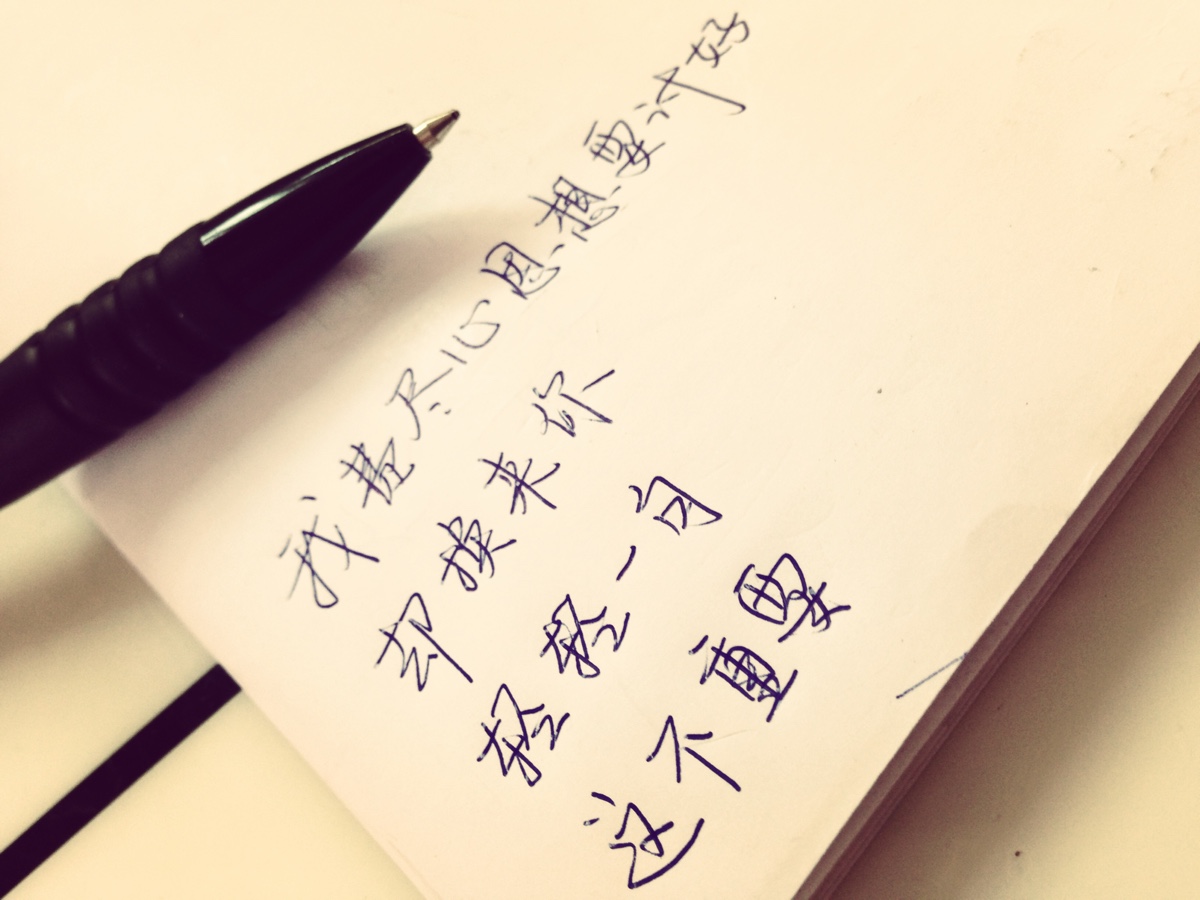 我费尽心思想要讨好
却换来你
轻轻一句
这不重要